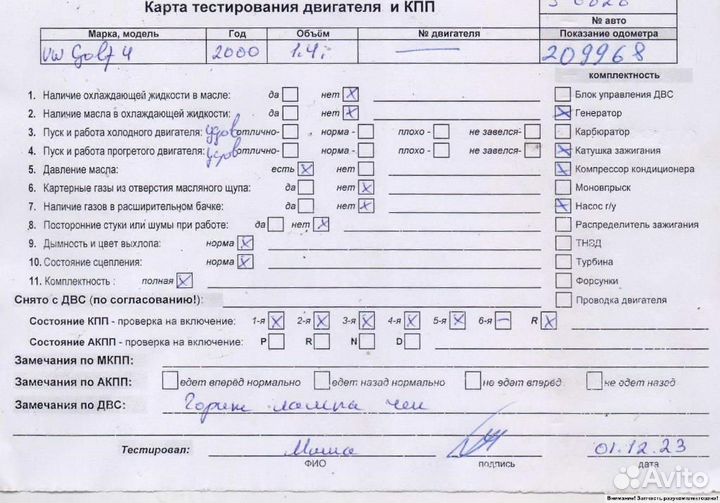 Карта тестирования двигателя и КПП
№ авто
Марка, модель Год Объём № двигателя Показание одометра
VW Golf 4 2000 1.4i 209968
комплектность
1. Наличие охлаждающей жидкости в масле: да нет X Блок управления ДВС
2. Наличие масла в охлаждающей жидкости: да нет X X Генератор
3. Пуск и работа холодного двигателя: удов отлично- норма - плохо - не завелся- Карбюратор
4. Пуск и работа прогретого двигателя: удов отлично- норма - плохо - не завелся- X Катушка зажигания
5. Давление масла: есть X нет X Компрессор кондиционера
6. Картерные газы из отверстия масляного щупа: да нет X Моновпрыск
7. Наличие газов в расширительном бачке: да нет X X Насос г/у
8. Посторонние стуки или шумы при работе: да нет X Распределитель зажигания
9. Дымность и цвет выхлопа: норма X ТНВД
10. Состояние сцепления: норма X Турбина
11. Комплектность : полная X Форсунки
Снято с ДВС (по согласованию!): Проводка двигателя
Состояние КПП - проверка на включение: 1-я X 2-я X 3-я X 4-я X 5-я X 6-я – R X
Состояние АКПП - проверка на включение: P R N D
Замечания по МКПП:
Замечания по АКПП: едет вперёд нормально едет назад нормально не едет вперёд не едет назад
Замечания по ДВС: Горит лампа чек
Тестировал: Миша 01.12.23
ФИО подпись дата
Avito
Внимание! Запчасть разукомплектована!